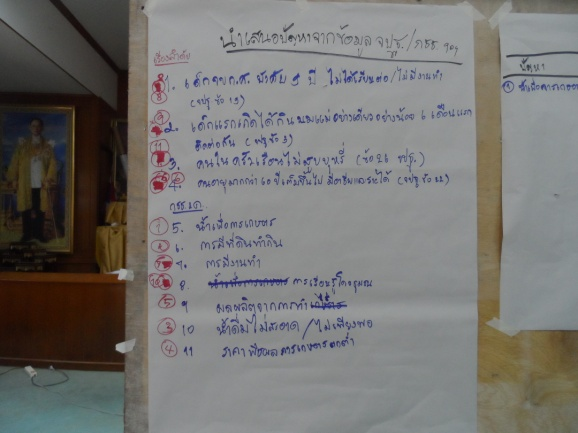 นำเสนอปัญหาจากข้อมูล จปฐ./กชช
เรียงลำดับ
1. เด็กจบ ภาคบังคับ 9 ปี ไม่ได้เรียนต่อ/ไม่มีงานทำ
8 (จปฐ ข้อ 19)
9 2. เด็กแรกเกิดได้กินนมแม่อย่างเดียวอย่างน้อย 6 เดือนแรก
ติดต่อกัน (จปฐ ข้อ 3)
11 3. คนในครัวเรือนไม่สูบบุหรี่ (ข้อ 26 จปฐ.)
4. คนอายุมากกว่า 60 ปีเต็มขึ้นไป มีอาชีพและรายได้ (จปฐ ข้อ 22)
กชช.
1 5. น้ำเพื่อการเกษตร
6. การมีที่ดินทำกิน
7. การมีงานทำ
8. น้ำเพื่อการเกษตร การเรียนรู้โดยชุมชน
5 9 ผลผลิตจากการทำ
3 10 น้ำดื่มไม่สะอาด/ไม่เพียงพอ
4 11 ราคาพืชผลการเกษตรตกต่ำ
ปัญหา
น้ำเพื่อการเกษตร